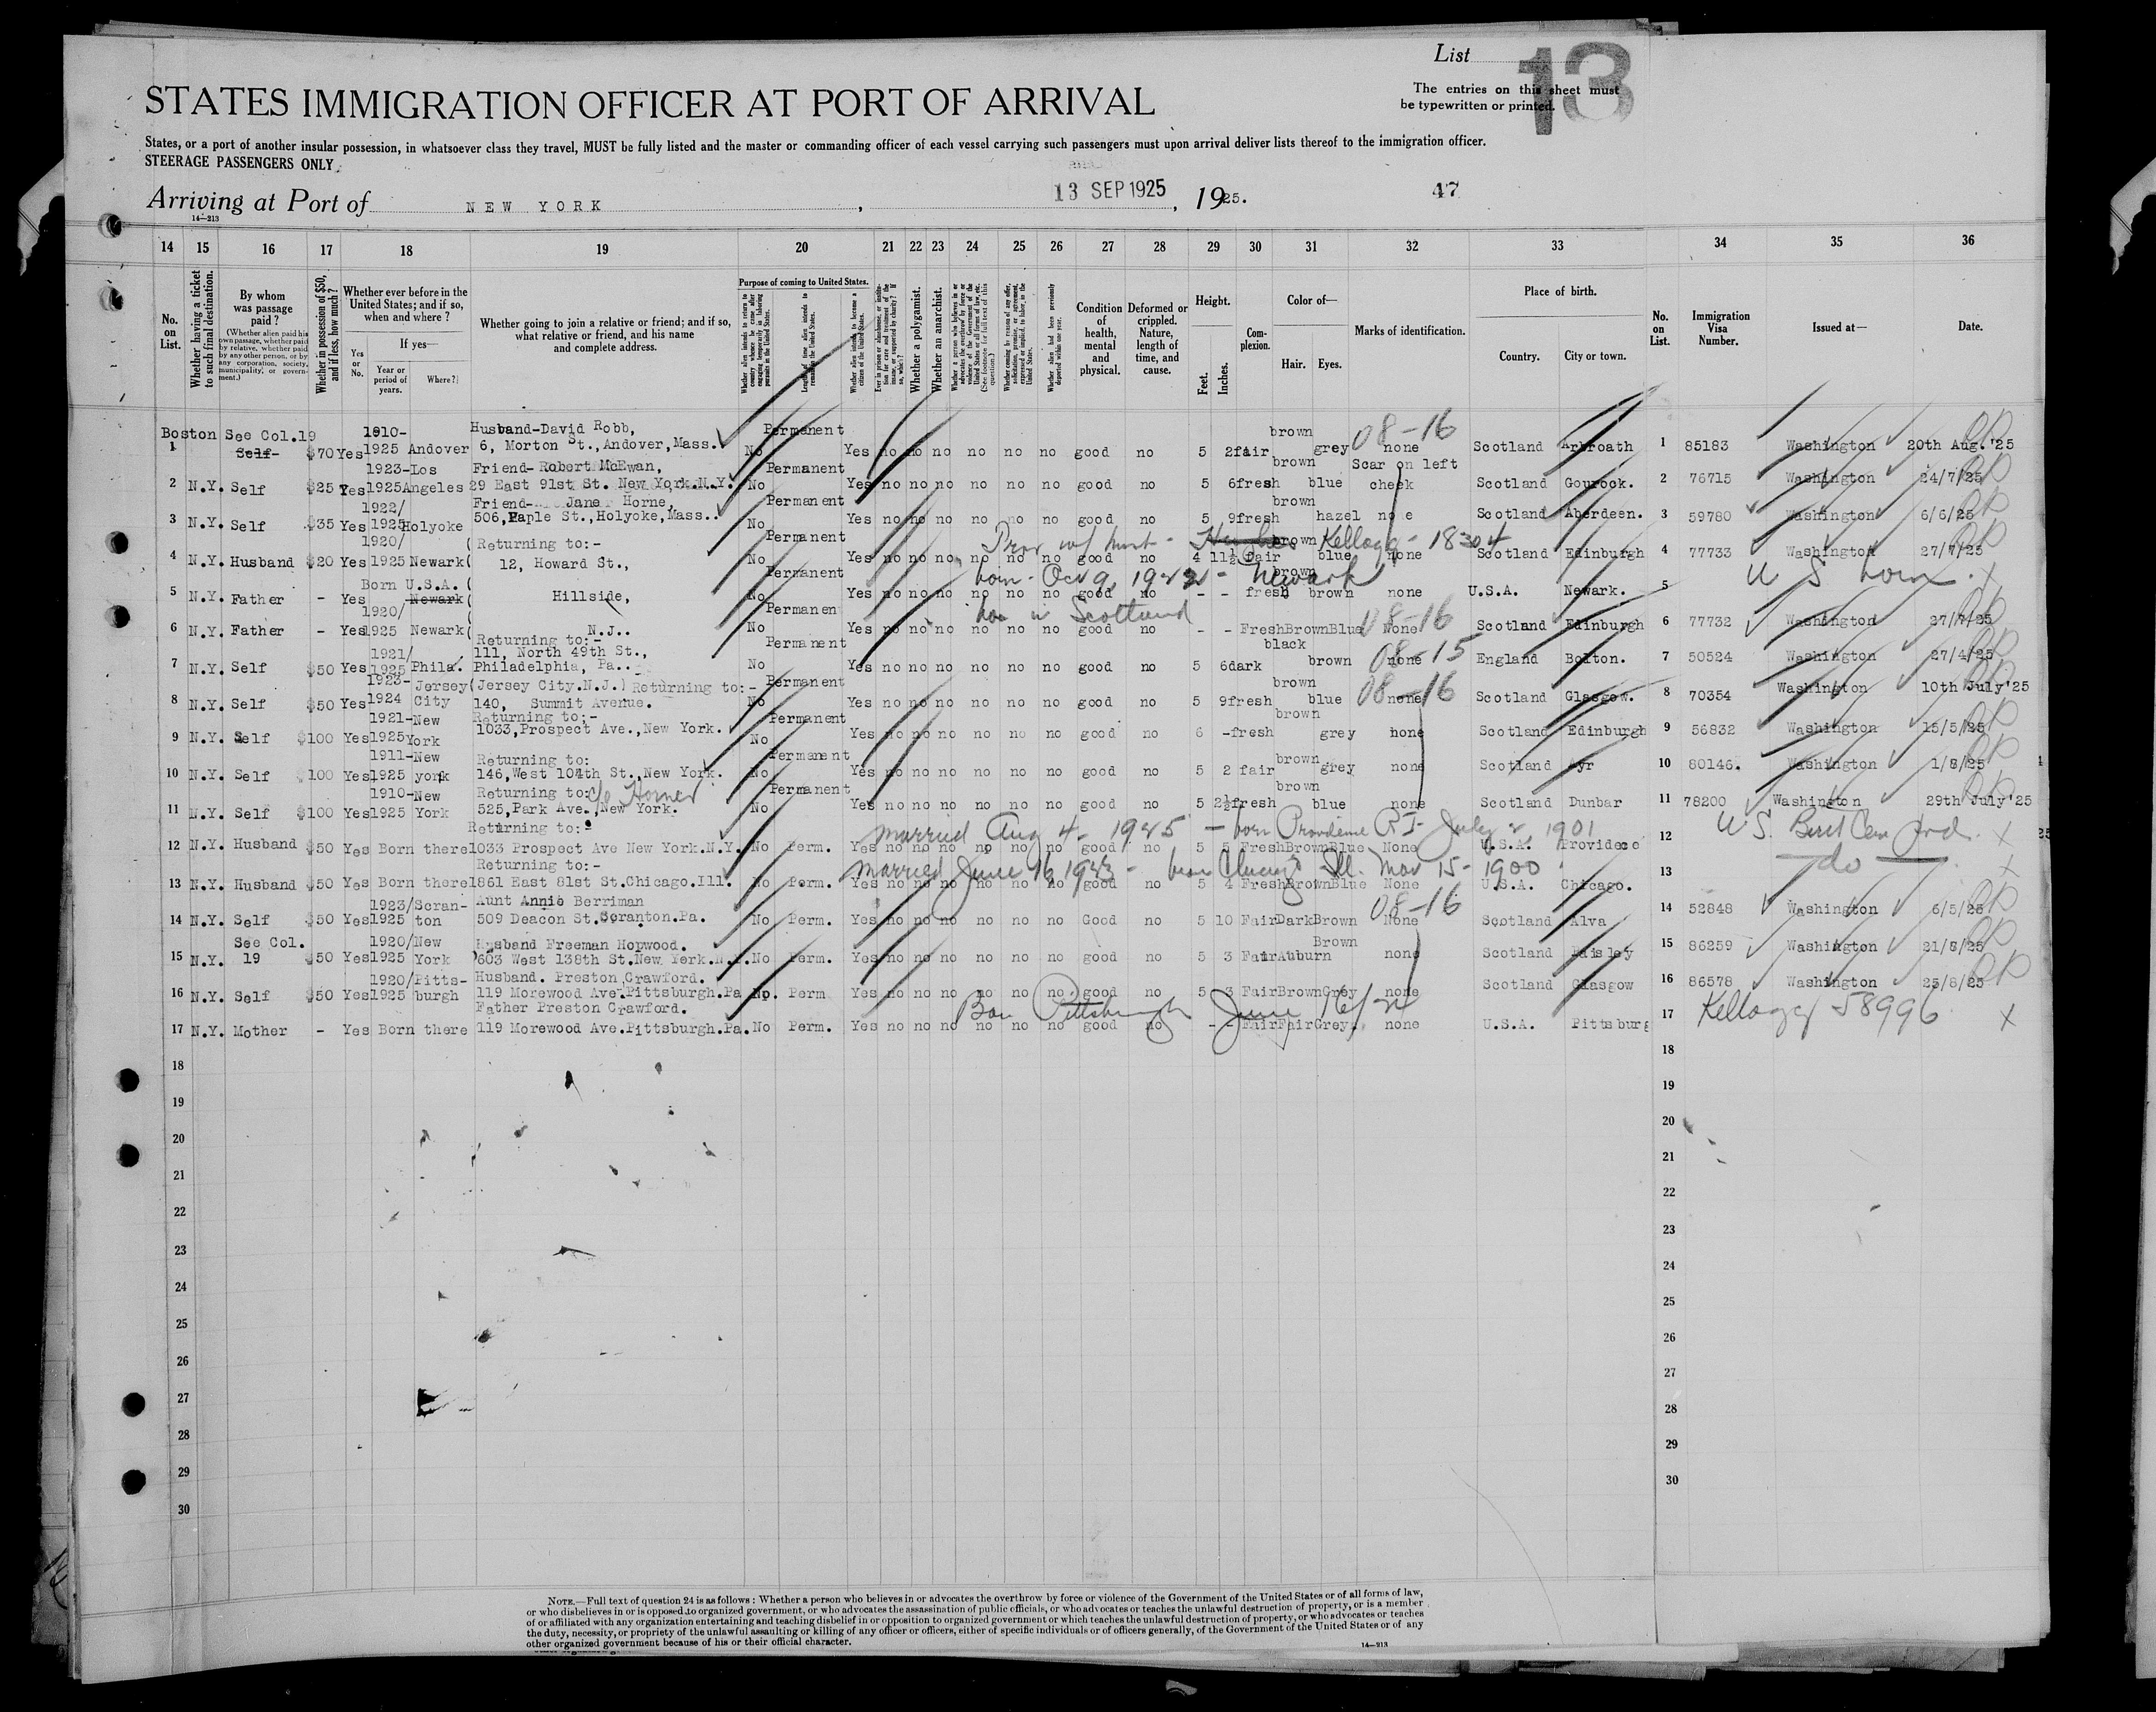 List 13
The entries on this sheet must
be typewritten or printed.
STATES IMMIGRATION OFFICER AT PORT OF ARRIVAL
States, or a port of another insular possession, in whatsoever class they travel, MUST be fully listed and the master or commanding officer of each vessel carrying such passengers must upon arrival deliver lists thereof to the immigration officer.
STEERAGE PASSENGERS ONLY
Arriving at Port of NEW YORK, 13 SEP 1925, 1925. 47
14—213
14 15 16 17 18 19 20 21 22 23 24 25 26 27 28 29 30 31 32 33 34 35 36
No. on List.
Whether having a ticket to such final destination.
By whom was passage paid?
(Whether alien paid his own passage, whether paid by relative, whether paid by any other person, or by any corporation, society, municipality, or government.)
Whether in possession of $50, and if less, how much?
Whether ever before in the United States; and if so, when and where?
Yes or No.
If yes—
Year or period of years.
Where?
Whether going to join a relative or friend; and if so, what relative or friend, and his name and complete address.
Purpose of coming to United States.
Whether alien intends to return to country whence he came after engaging temporarily in laboring pursuits in the United States.
Length of time alien intends to remain in the United States.
Whether alien intends to become a citizen of the United States.
Whether a polygamist.
Whether an anarchist.
Condition of health, mental and physical.
Deformed or crippled. Nature, length of time, and cause.
Height.
Feet. Inches.
Complexion.
Color of—
Hair. Eyes.
Marks of identification.
Place of birth.
Country. City or town.
No. on List.
Immigration Visa Number.
Issued at—
Date.
1 Boston See Col.19 Self- $70 Yes 1910-1925 Andover Husband-David Robb, 6, Morton St., Andover, Mass. No Permanent Yes no no no no no no good no 5 2 fair brown grey none 08-16 Scotland Arbroath 1 85183 Washington 20th Aug.'25
2 N.Y. Self $25 Yes 1923-1925 Los Angeles Friend- Robert McEwan, 29 East 91st St. New York.N.Y. No Permanent Yes no no no no no no good no 5 6 fresh brown blue Scar on left cheek Scotland Gourock. 2 76715 Washington 24/7/25
3 N.Y. Self $35 Yes 1922/1925 Holyoke Friend- Jane Horne, 506, Maple St., Holyoke, Mass.. No Permanent Yes no no no no no no good no 5 9 fresh brown hazel none Scotland Aberdeen. 3 59780 Washington 6/6/25
4 N.Y. Husband $20 Yes 1920/1925 Newark ( Returning to:- 12, Howard St., No Permanent Yes no no no no no no good no 4 11½ fair brown blue none Hughes Kellogg - 18304 Scotland Edinburgh 4 77733 Washington 27/7/25
5 N.Y. Father - Yes Born U.S.A. Newark ( Hillside, No Permanent Yes no no no no no no good no - - fresh brown brown none born - Oct 9, 1922 - Newark U.S.A. Newark. 5 U S born X
6 N.Y. Father - Yes 1920/1925 Newark ( N.J.. No Permanent Yes no no no no no no good no - - Fresh Brown Blue None born in Scotland 08-16 Scotland Edinburgh 6 77732 Washington 27/7/25
7 N.Y. Self $50 Yes 1921/1925 Phila. Returning to:- 111, North 49th St., Philadelphia, Pa.. No Permanent Yes no no no no no no good no 5 6 dark black brown none 08-15 England Bolton. 7 50524 Washington 27/4/25
8 N.Y. Self $50 Yes 1923-1924 Jersey City (Jersey City.N.J.) Returning to:- 140, Summit Avenue. No Permanent Yes no no no no no no good no 5 9 fresh brown blue none 08-16 Scotland Glasgow. 8 70354 Washington 10th July'25
9 N.Y. Self $100 Yes 1921-1925 New York Returning to;- 1033, Prospect Ave., New York. No Permanent Yes no no no no no no good no 6 - fresh brown grey none Scotland Edinburgh 9 56832 Washington 15/5/25
10 N.Y. Self $100 Yes 1911-1925 New york Returning to: 146, West 104th St., New York. No Permanent Yes no no no no no no good no 5 2 fair brown grey none Scotland Ayr 10 80146. Washington 1/8/25
11 N.Y. Self $100 Yes 1910-1925 New York Returning to: c/o Horner 525, Park Ave., New York. No Permanent Yes no no no no no no good no 5 2½ fresh brown blue none Scotland Dunbar 11 78200 Washington 29th July'25
12 N.Y. Husband $50 Yes Born there Returning to:- 1033 Prospect Ave New York.N.Y. No Perm. Yes no no no no no no good no 5 5 Fresh Brown Blue None married Aug 4 - 1925 - born Providence R I - July 2 1901 U.S.A. Providece 12 U.S. Birth Cer X
13 N.Y. Husband $50 Yes Born there Returning to:- 1861 East 81st St.Chicago.Ill. No Perm. Yes no no no no no no good no 5 4 Fresh Brown Blue None married June 16 1923 - born Chicago Ill. Mar 15 - 1900 U.S.A. Chicago. 13 do X
14 N.Y. Self $50 Yes 1923/1925 Scranton Aunt Annie Berriman 509 Deacon St.Scranton.Pa. No Perm. Yes no no no no no no Good no 5 10 Fair Dark Brown None 08-16 Scotland Alva 14 52848 Washington 6/5/25
15 N.Y. See Col. 19 $50 Yes 1920/1925 New York Husband Freeman Hopwood. 603 West 138th St.New York.N.Y. No Perm. Yes no no no no no no good no 5 3 Fair Auburn Brown none Scotland Paisley 15 86259 Washington 21/8/25
16 N.Y. Self $50 Yes 1920/1925 Pittsburgh Husband. Preston Crawford. 119 Morewood Ave.Pittsburgh.Pa No. Perm Yes no no no no no no good no 5 3 Fair Brown Grey none Scotland Glasgow 16 86578 Washington 25/8/25
17 N.Y. Mother - Yes Born there Father Preston Crawford. 119 Morewood Ave.Pittsburgh.Pa. No Perm. Yes no no no no no no good no - - Fair Fair Grey. none Born Pittsburgh June 16/24 U.S.A. Pittsburg 17 Kellogg 58996 X
18 18
19 19
20 20
21 21
22 22
23 23
24 24
25 25
26 26
27 27
28 28
29 29
30 30
NOTE.—Full text of question 24 is as follows: Whether a person who believes in or advocates the overthrow by force or violence of the Government of the United States or of all forms of law,
or who disbelieves in or is opposed to organized government, or who advocates the assassination of public officials, or who advocates or teaches the unlawful destruction of property, or is a member
of or affiliated with any organization entertaining and teaching disbelief in or opposition to organized government or which teaches the unlawful destruction of property, or who advocates or teaches
the duty, necessity, or propriety of the unlawful assaulting or killing of any officer or officers, either of specific individuals or of officers generally, of the Government of the United States or of any
other organized government because of his or their official character.
14—213